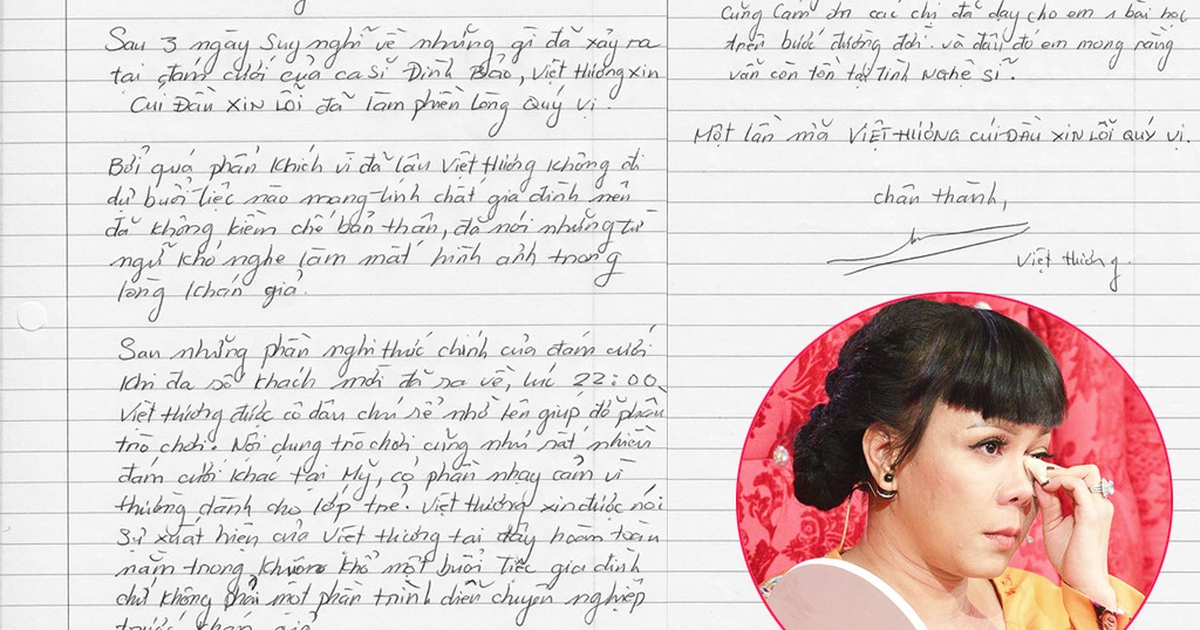 Sau 3 ngày suy nghĩ về những gì đã xảy ra
tại đám cưới của ca sĩ Đình Bảo, Việt Hương xin
CÚI ĐẦU XIN LỖI đã làm phiền lòng Quý vị.
Bởi quá phấn khích vì đã lâu Việt Hương không đi
dự buổi tiệc nào mang tính chất gia đình nên
đã không kiềm chế bản thân, đã nói những từ
ngữ khó nghe làm mất hình ảnh trong
lòng khán giả.
Sau những phần nghi thức chính của đám cưới
khi đa số khách mời đã ra về, lúc 22:00,
Việt Hương được cô dâu chú rể nhờ lên giúp đỡ phần
trò chơi. Nội dung trò chơi cũng như rất nhiều
đám cưới khác tại Mỹ, có phần nhạy cảm vì
thường dành cho lớp trẻ. Việt Hương xin được nói
sự xuất hiện của Việt Hương tại đây hoàn toàn
nằm trong khuôn khổ một buổi tiệc gia đình
chứ không phải một phần trình diễn chuyên nghiệp
trước khán giả
Cũng cảm ơn các chị đã dạy cho em 1 bài học
trên bước đường đời. và đâu đó em mong rằng
vẫn còn tồn tại tình nghệ sĩ.
Một lần nữa VIỆT HƯƠNG CÚI ĐẦU XIN LỖI QUÝ VỊ.
chân thành,
Việt Hương.